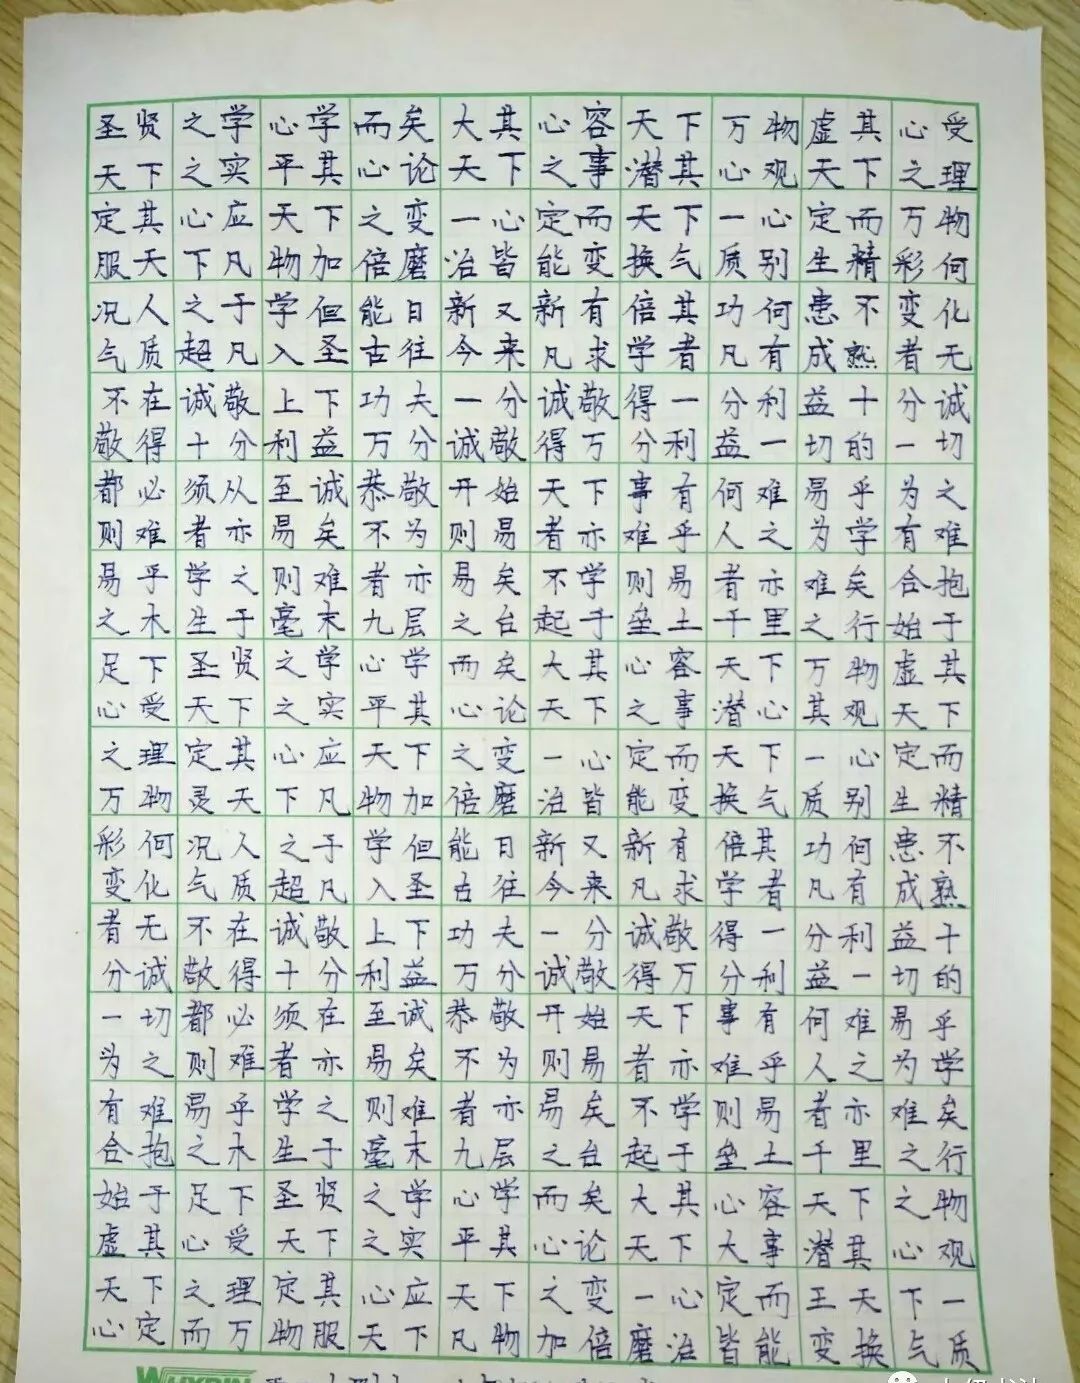 圣贤之学心学而矣大其心容天下万物虚其心受
天下之实平其心论天下之事潜其心观天下之理
定其心应天下之变一心定而天下一心定而万物
服天下凡物加倍磨冶皆能变换气质别生精彩何
况人之于学但能日新又新有倍其功何患不变化
气质超凡入圣古往今来凡求学者凡有成熟者无
不在诚敬上下功夫一分诚敬得一分利益十分诚
敬得十分利益万分诚敬得万分利益一切的一切
都必须从至诚恭敬开始天下事有何难易乎为之
则难者亦易矣不为则易者亦难乎人之为学有难
易乎学之则难者亦易矣不学则易者亦难矣合抱
之木生于毫末九层之台起于垒土千里之行始于
足下圣贤之学心学而矣大其心容天下万物虚其
心受天下之实平其心论天下之事潜心其观天下
之理定其心应天下之变一心定而天下一心定而
万物灵天下凡物加倍磨冶皆能变换气质别生精
彩何况人之于学但能日新又新有倍其功何患不
变化气质超凡入圣古往今来凡求学者凡有成熟
者无不在诚敬上下功夫一分诚敬得一分利益十
分诚敬得十分利益万分诚敬得万分利益一切的
一切都必须在至诚恭敬开始天下事有何难易乎
为之则难者亦易矣不为则易者亦难乎人之为学
有难易乎学之则难者亦易矣不学则易者亦难矣
合抱之木生于毫末九层之台起于垒土千里之行
始于足下圣贤之学心学而矣大其心容天下之物
虚其心受天下之实平其心论天下大事潜其心观
天下之理定其心应天下之变一心定而王天下一
心定而万物服天下凡物加倍磨冶皆能变换气质